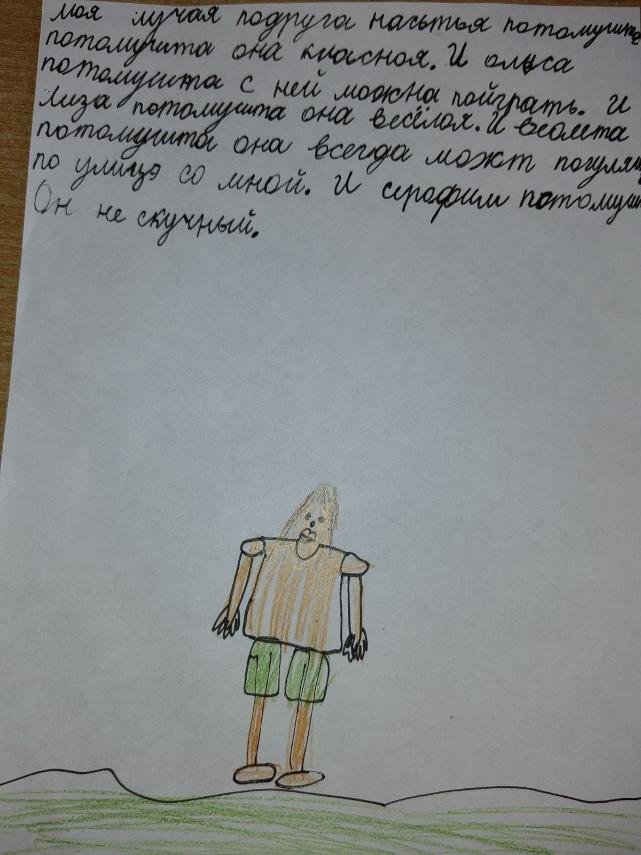 моя лучая подруга насьтья потомушта
потомушта она класноя. И олиса
потомушта с ней можна пойграть. И
Лиза потомушта она весёлоя. И веолета
потомушта она всегда можт погулят
по улице со мной. И серофим потомушт
Он не скучный.